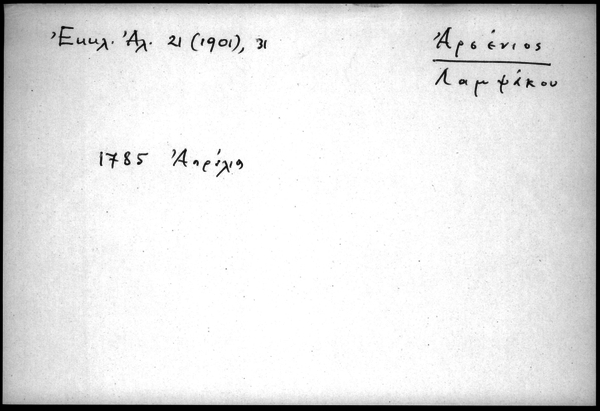 Ἐκκλ. Ἀλ. 21 (1901), 31
Ἀρσένιος
Λαμψάκου
1785 Ἀπρίλιο